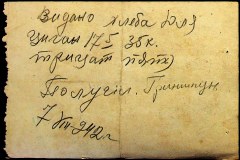 Видано хлеба для
циган 175 35к.
(тридцат пять)
Получил. Гриншпун.
7 942г